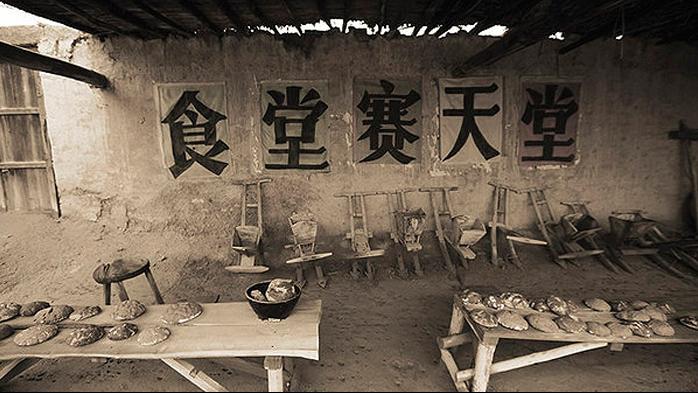 食堂赛天堂